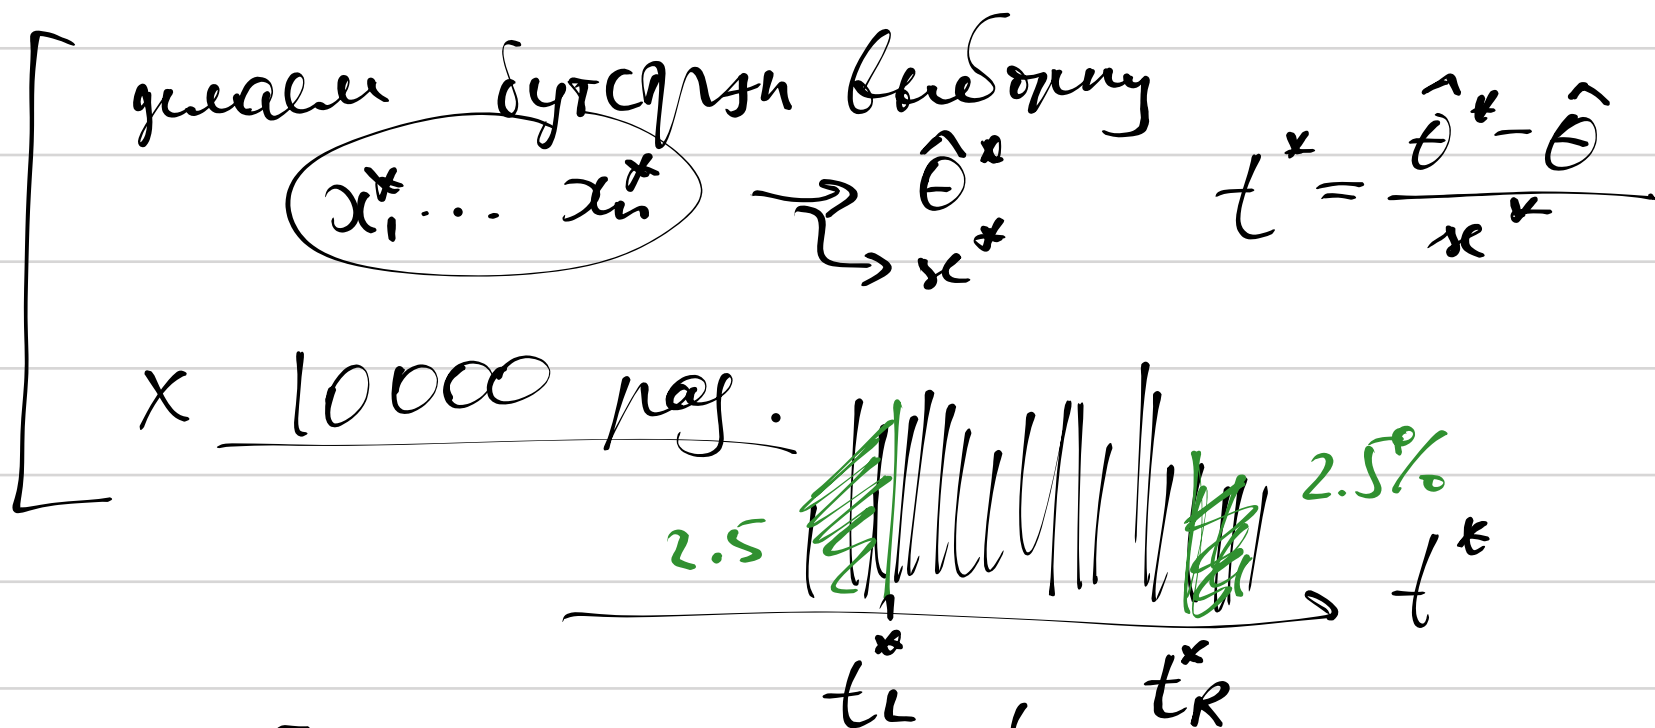 делаем бутстрэп выборку
x₁* ... xₙ* → θ̂* t* = (θ̂* - θ̂) / se*
→ se*
× 10000 раз.
2.5 2.5%
t*
t_L* t_R*